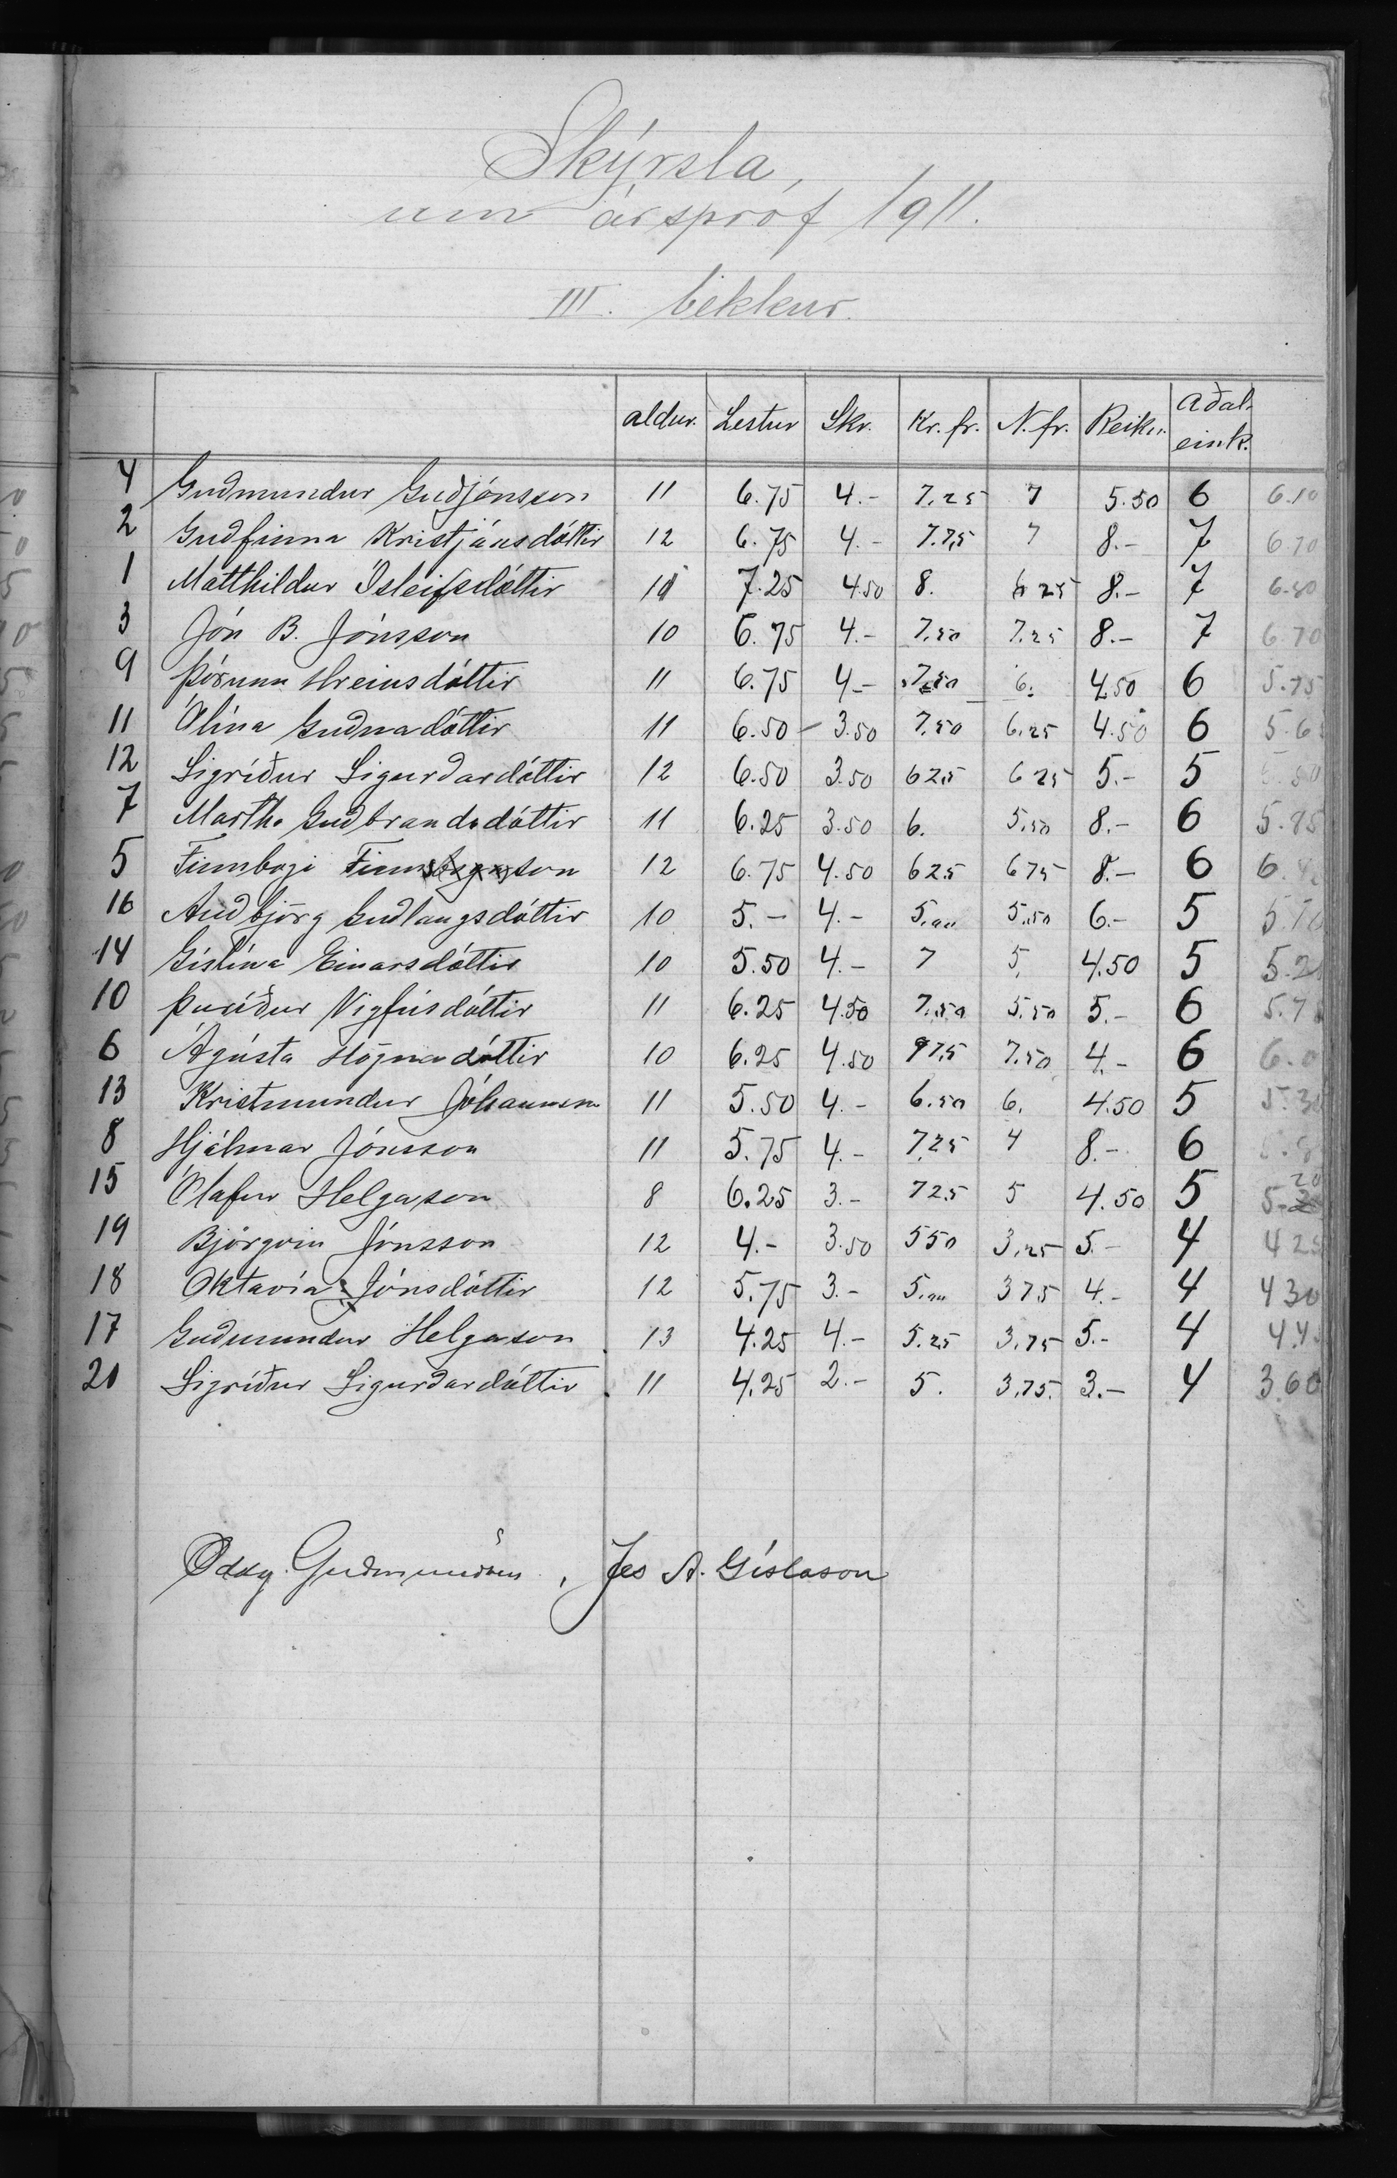 Skýrsla,
um árspróf 1911.
III. bekkur.
aldur. Lestur Skr. Kr. fr. N. fr. Reikn. Aðal-eink.
4 Guðmundur Guðjónsson 11 6.75 4.- 7.25 7 5.50 6 6.10
2 Guðfinna Kristjánsdóttir 12 6.75 4.- 7.75 7 8.- 7 6.70
1 Matthildur Ísleifsdóttir 11 7.25 4.50 8. 6 25 8.- 7 6.80
3 Jón B. Jónsson 10 6.75 4.- 7.50 7.25 8.- 7 6.70
9 Þórunn Hreinsdóttir 11 6.75 4.- 7.50 6. 4.50 6 5.75
11 Ólína Guðnadóttir 11 6.50 3.50 7.50 6.25 4.50 6 5.6
12 Sigríður Sigurðardóttir 12 6.50 3.50 625 6 25 5.- 5
7 Martha Guðbrandsdóttir 11 6.25 3.50 6. 5.50 8.- 6 5.85
5 Finnbogi Finnsson 12 6.75 4.50 625 675 8.- 6 6.4
16 Auðbjörg Guðlaugsdóttir 10 5.- 4.- 5.00 5.50 6.- 5 5.10
14 Gíslína Einarsdóttir 10 5.50 4.- 7 5. 4.50 5 5.2
10 Þuríður Vigfúsdóttir 11 6.25 4.50 7.50 5.50 5.- 6 5.7
6 Ágústa Högnadóttir 10 6.25 4.50 775 7.50 4.- 6 6.0
13 Kristmundur Jóhannsson 11 5.50 4.- 6.50 6. 4.50 5 5.30
8 Hjálmar Jónsson 11 5.75 4.- 7.25 4 8.- 6
15 Ólafur Helgason 8 6.25 3.- 725 5 4.50 5 5.20
19 Björgvin Jónsson 12 4.- 3.50 550 3.25 5.- 4 4 25
18 Oktavía Jónsdóttir 12 5.75 3.- 5.00 375 4.- 4 4 30
17 Guðmundur Helgason 13 4.25 4.- 5.25 3.75 5.- 4 4.4
20 Sigríður Sigurðardóttir 11 4.25 2.- 5. 3.75. 3.- 4 3.60
Oddg. Guðmundsen, Jes A. Gíslason